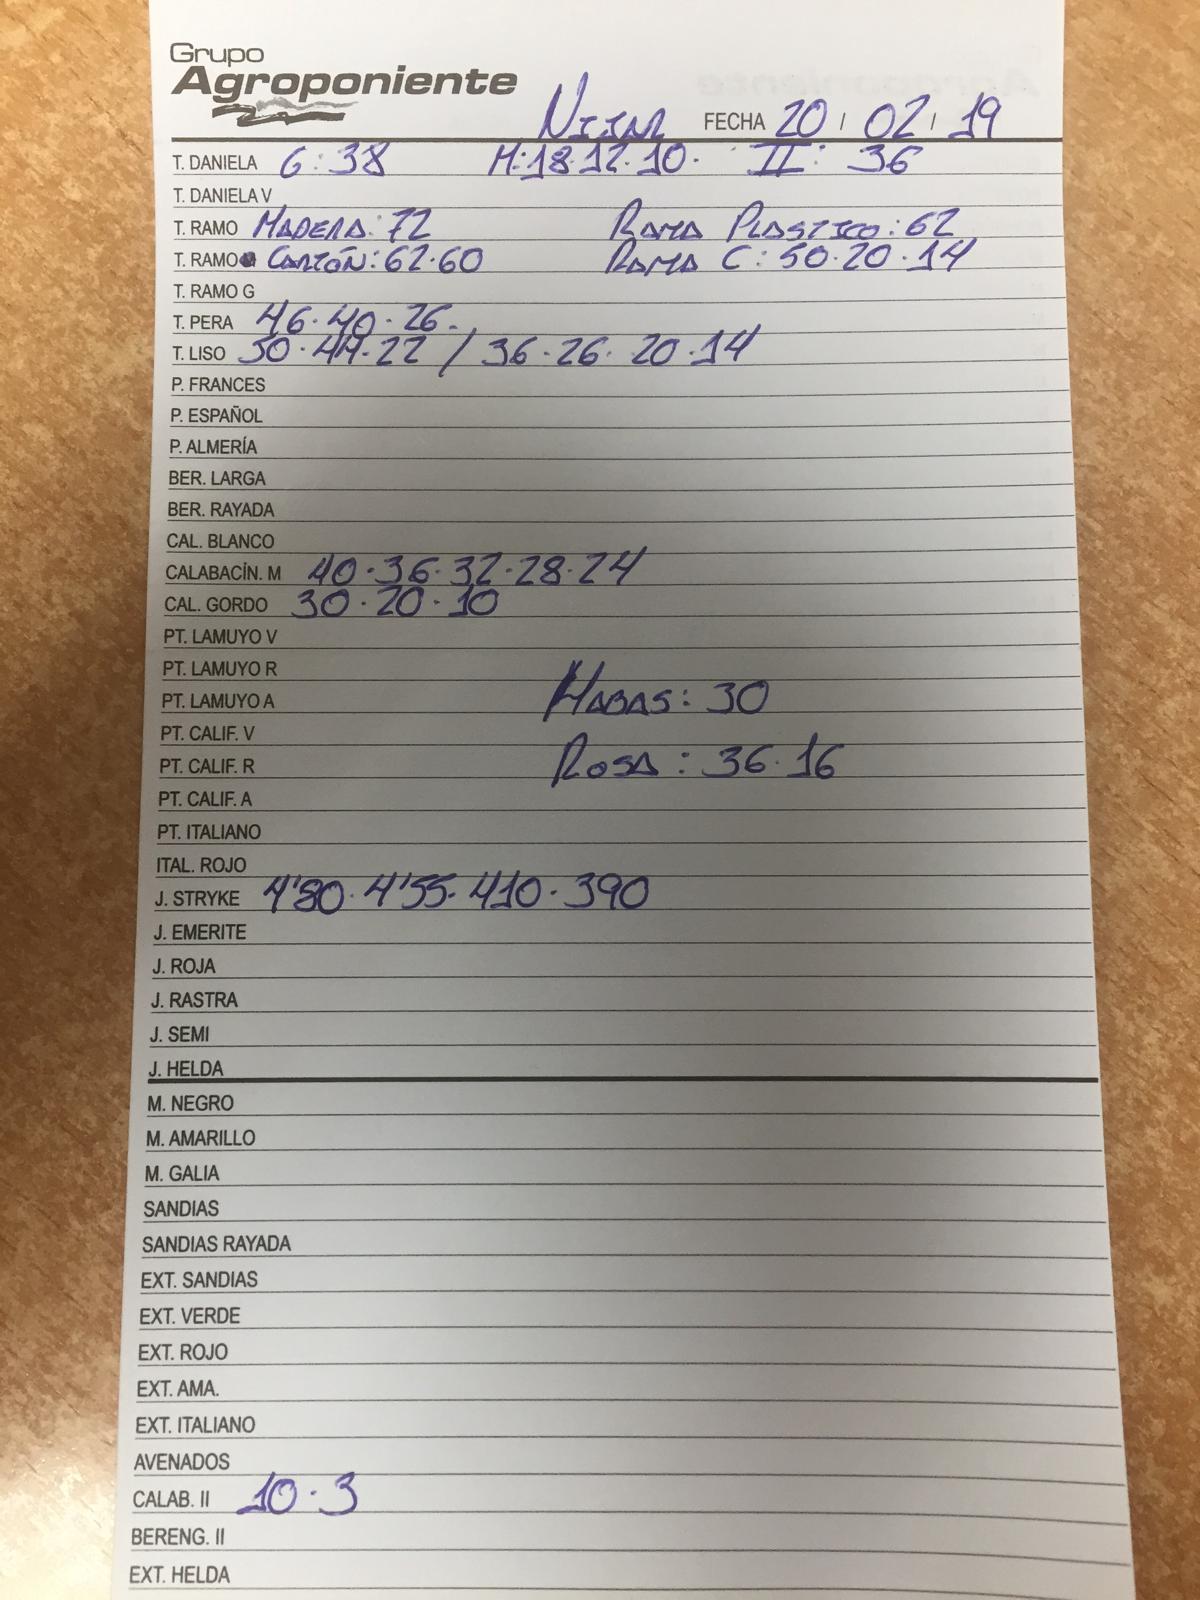 Grupo
Agroponiente
NIJAR FECHA 20 / 02 / 19
T. DANIELA G:38 M:18·12·10· II: 36
T. DANIELA V
T. RAMO MADERA:72 RAMA PLASTICO:62
T. RAMO CARTÓN:62·60 RAMA C:50·20·14
T. RAMO G
T. PERA 46·40·26-
T. LISO 50·44·22 / 36·26·20·14
P. FRANCES
P. ESPAÑOL
P. ALMERÍA
BER. LARGA
BER. RAYADA
CAL. BLANCO
CALABACÍN. M 40·36·32·28·24
CAL. GORDO 30·20·10
PT. LAMUYO V
PT. LAMUYO R
PT. LAMUYO A HABAS: 30
PT. CALIF. V
PT. CALIF. R ROSA: 36·16
PT. CALIF. A
PT. ITALIANO
ITAL. ROJO
J. STRYKE 4'80·4'55·410·390
J. EMERITE
J. ROJA
J. RASTRA
J. SEMI
J. HELDA
M. NEGRO
M. AMARILLO
M. GALIA
SANDIAS
SANDIAS RAYADA
EXT. SANDIAS
EXT. VERDE
EXT. ROJO
EXT. AMA.
EXT. ITALIANO
AVENADOS
CALAB. II 10·3
BERENG. II
EXT. HELDA